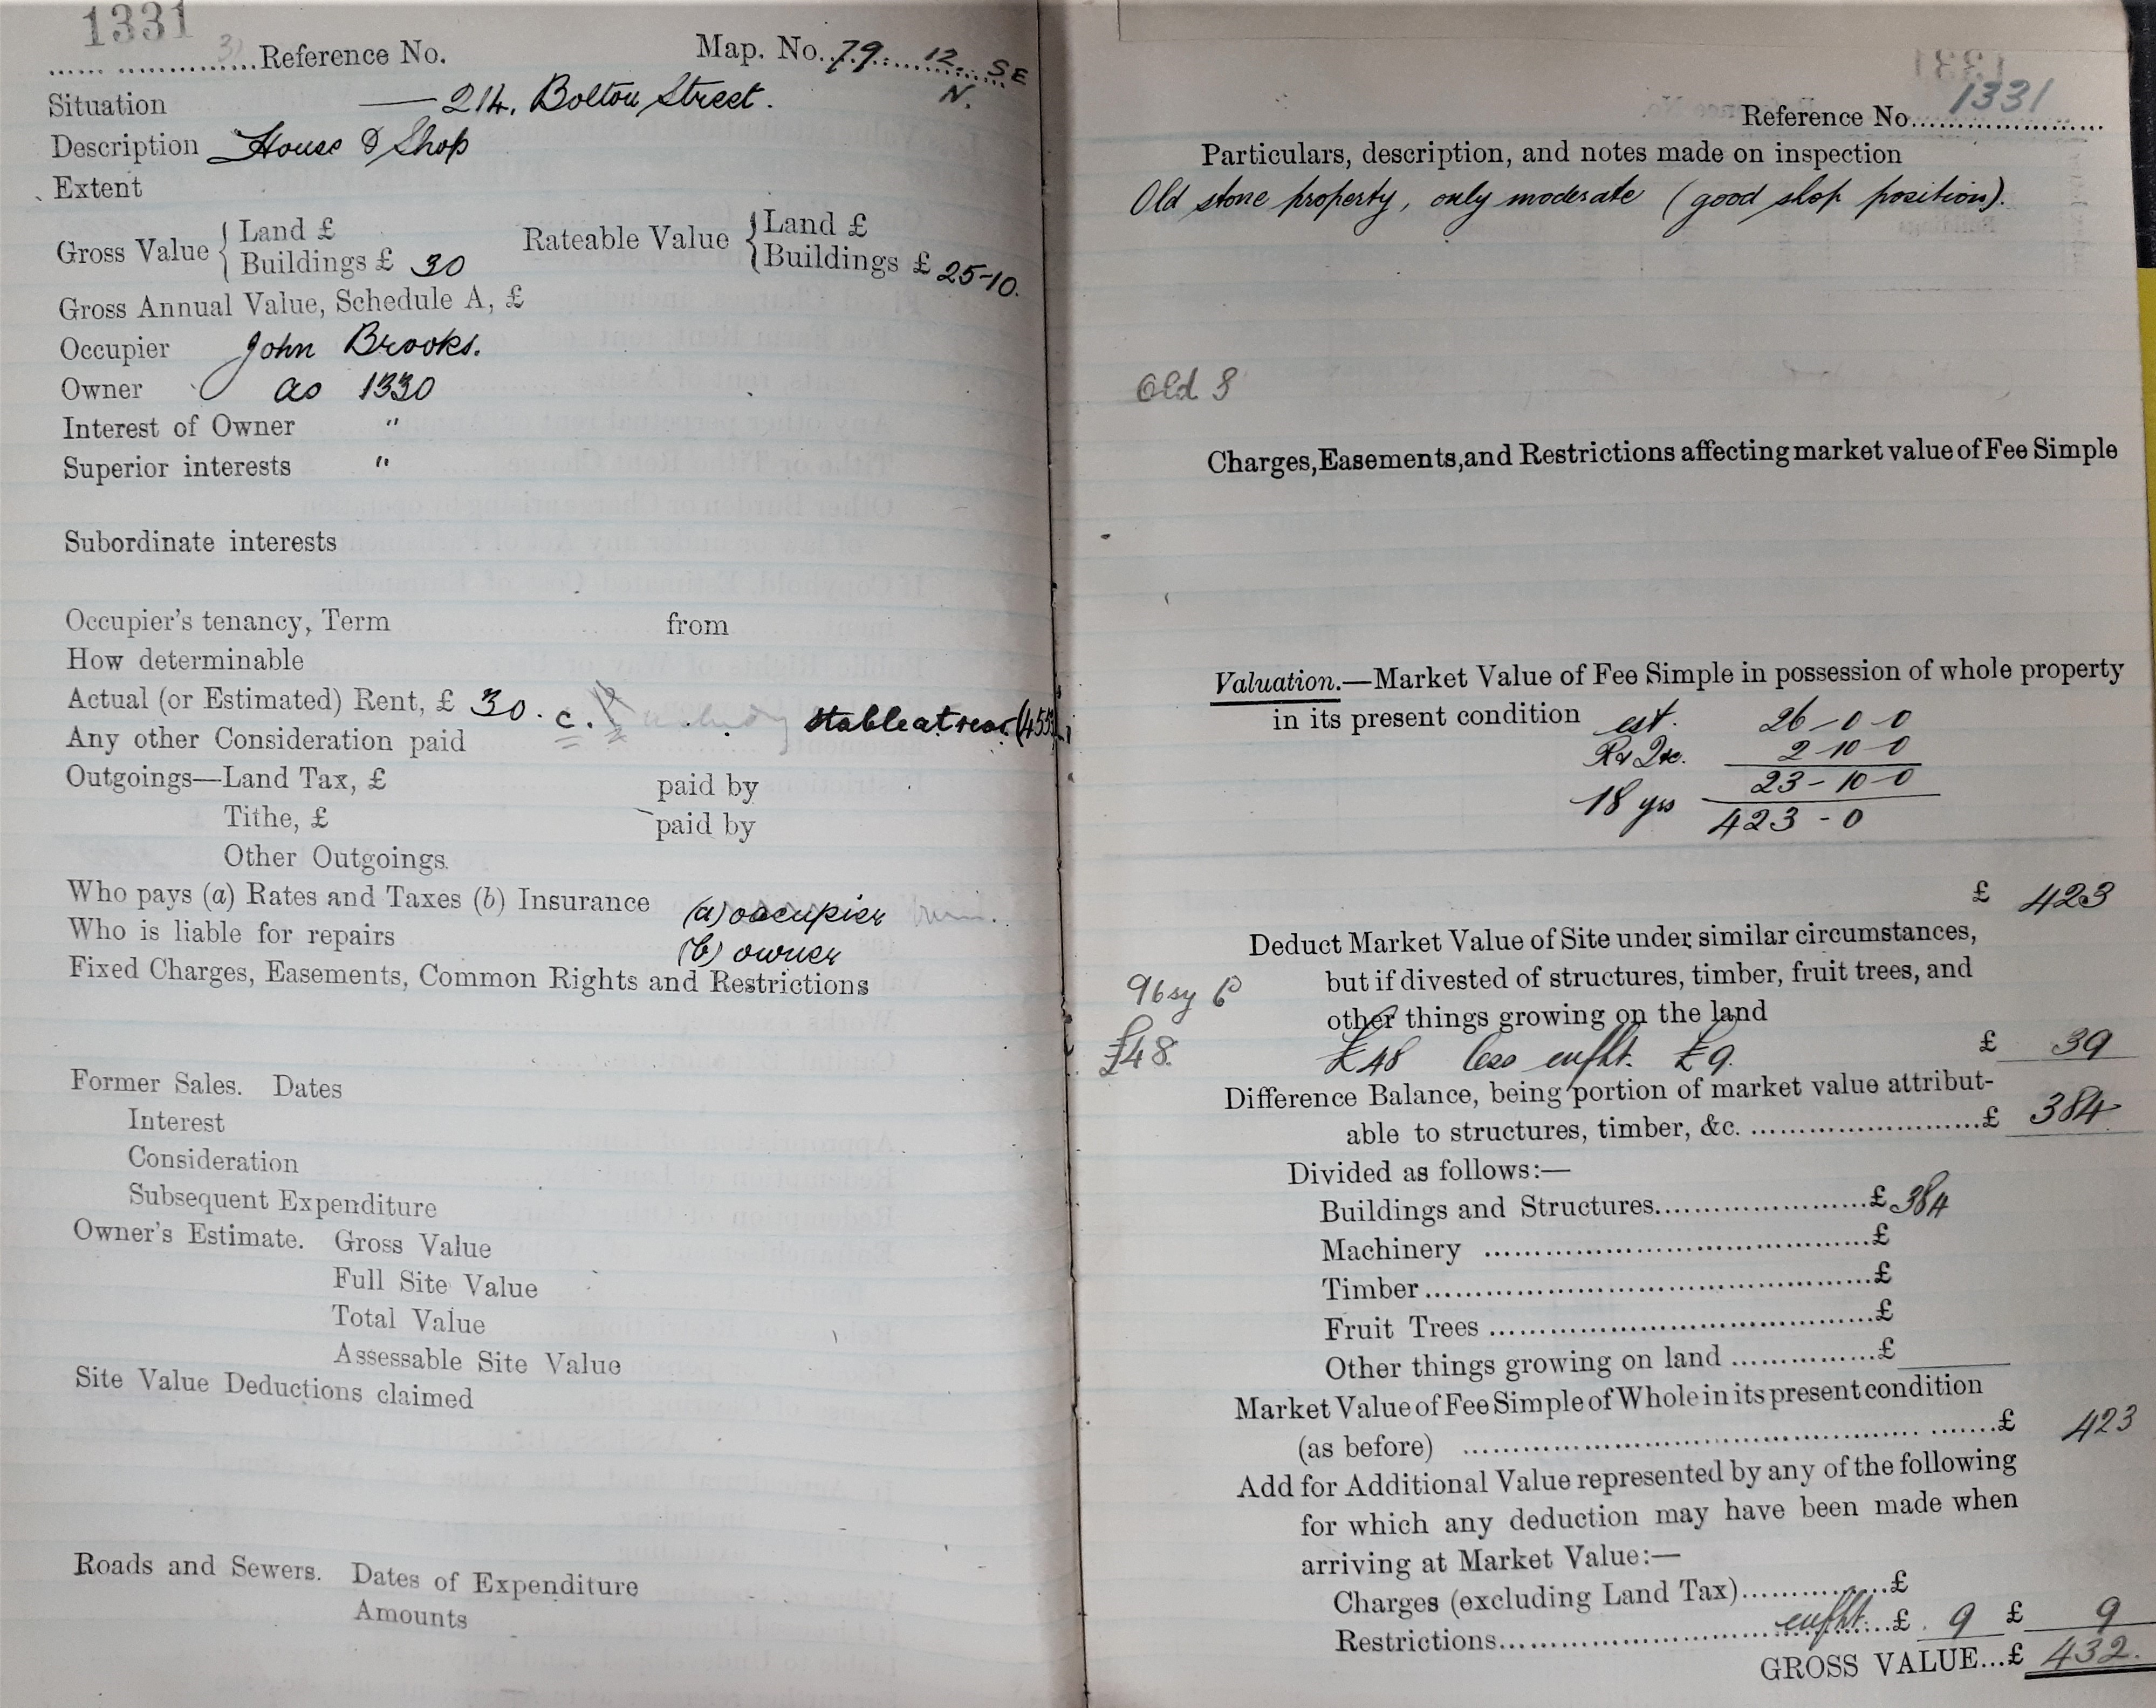 1331
Reference No. Map. No. 79 12. SE
N.
Situation — 214, Bolton Street.
Description House & Shop
Extent
Gross Value { Land £ Rateable Value { Land £
Buildings £ 30 Buildings £ 25-10.
Gross Annual Value, Schedule A, £
Occupier John Brooks.
Owner as 1330
Interest of Owner "
Superior interests "
Subordinate interests
Occupier's tenancy, Term from
How determinable
Actual (or Estimated) Rent, £ 30. c. stable at rear (455
Any other Consideration paid
Outgoings—Land Tax, £ paid by
Tithe, £ paid by
Other Outgoings
Who pays (a) Rates and Taxes (b) Insurance (a) occupier
Who is liable for repairs (b) owner
Fixed Charges, Easements, Common Rights and Restrictions
Former Sales. Dates
Interest
Consideration
Subsequent Expenditure
Owner's Estimate. Gross Value
Full Site Value
Total Value
Assessable Site Value
Site Value Deductions claimed
Roads and Sewers. Dates of Expenditure
Amounts
Reference No. 1331
Particulars, description, and notes made on inspection
Old stone property, only moderate (good shop position).
Old S
Charges, Easements, and Restrictions affecting market value of Fee Simple
Valuation.—Market Value of Fee Simple in possession of whole property
in its present condition est. 26-0-0
2-10-0
23-10-0
18 yrs 423-0
£ 423
Deduct Market Value of Site under similar circumstances,
but if divested of structures, timber, fruit trees, and
96 sy
other things growing on the land
£48. £48 less enfht. £9. £ 39
Difference Balance, being portion of market value attribut-
able to structures, timber, &c. £ 384
Divided as follows:—
Buildings and Structures £ 384
Machinery £
Timber £
Fruit Trees £
Other things growing on land £
Market Value of Fee Simple of Whole in its present condition
(as before) £ 423
Add for Additional Value represented by any of the following
for which any deduction may have been made when
arriving at Market Value:—
Charges (excluding Land Tax) £
Restrictions enfht. £ 9 £ 9
GROSS VALUE...£ 432.